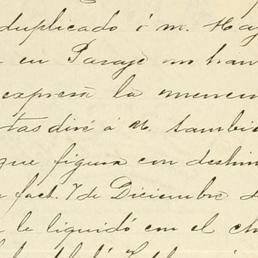 duplicado á m. Hay
en Pasaje no han
expresa la
tas diré á V. tambié
que figura con destin
fact. 7 de Diciembre d
le liquidó con el ch